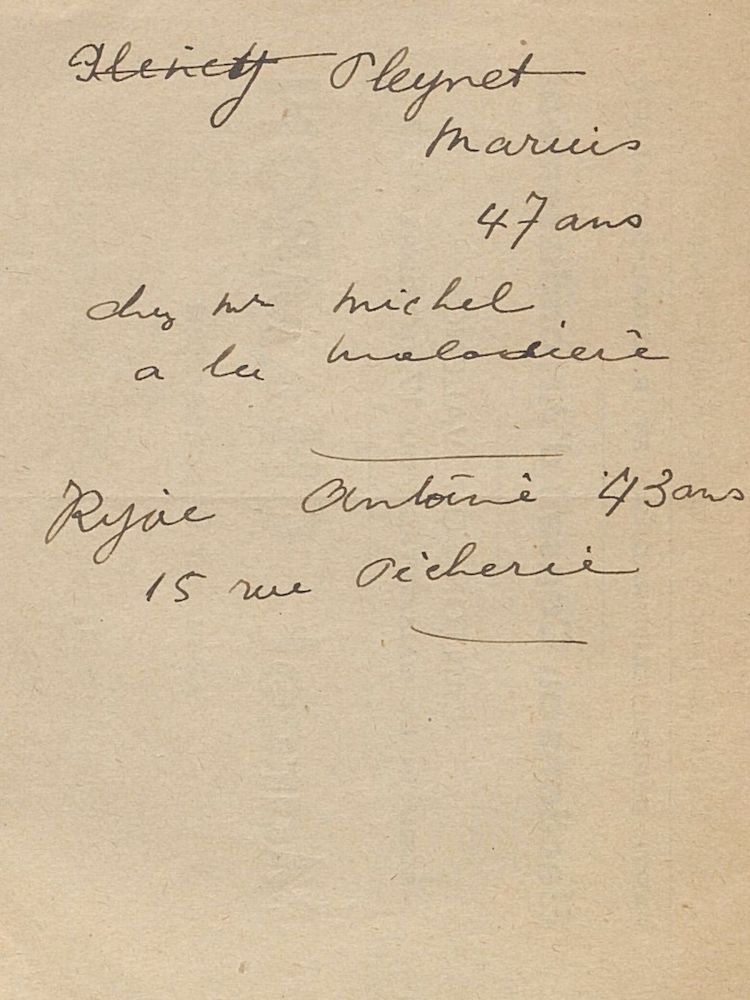 Pleynet
Marius
47 ans
chez Mr Michel
a la maladière
Antoine 43 ans
15 rue Pêcherie